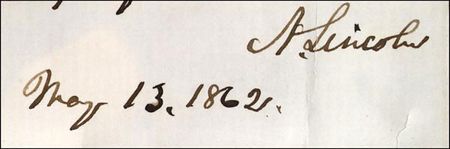 A. Lincoln
May 13, 1862.